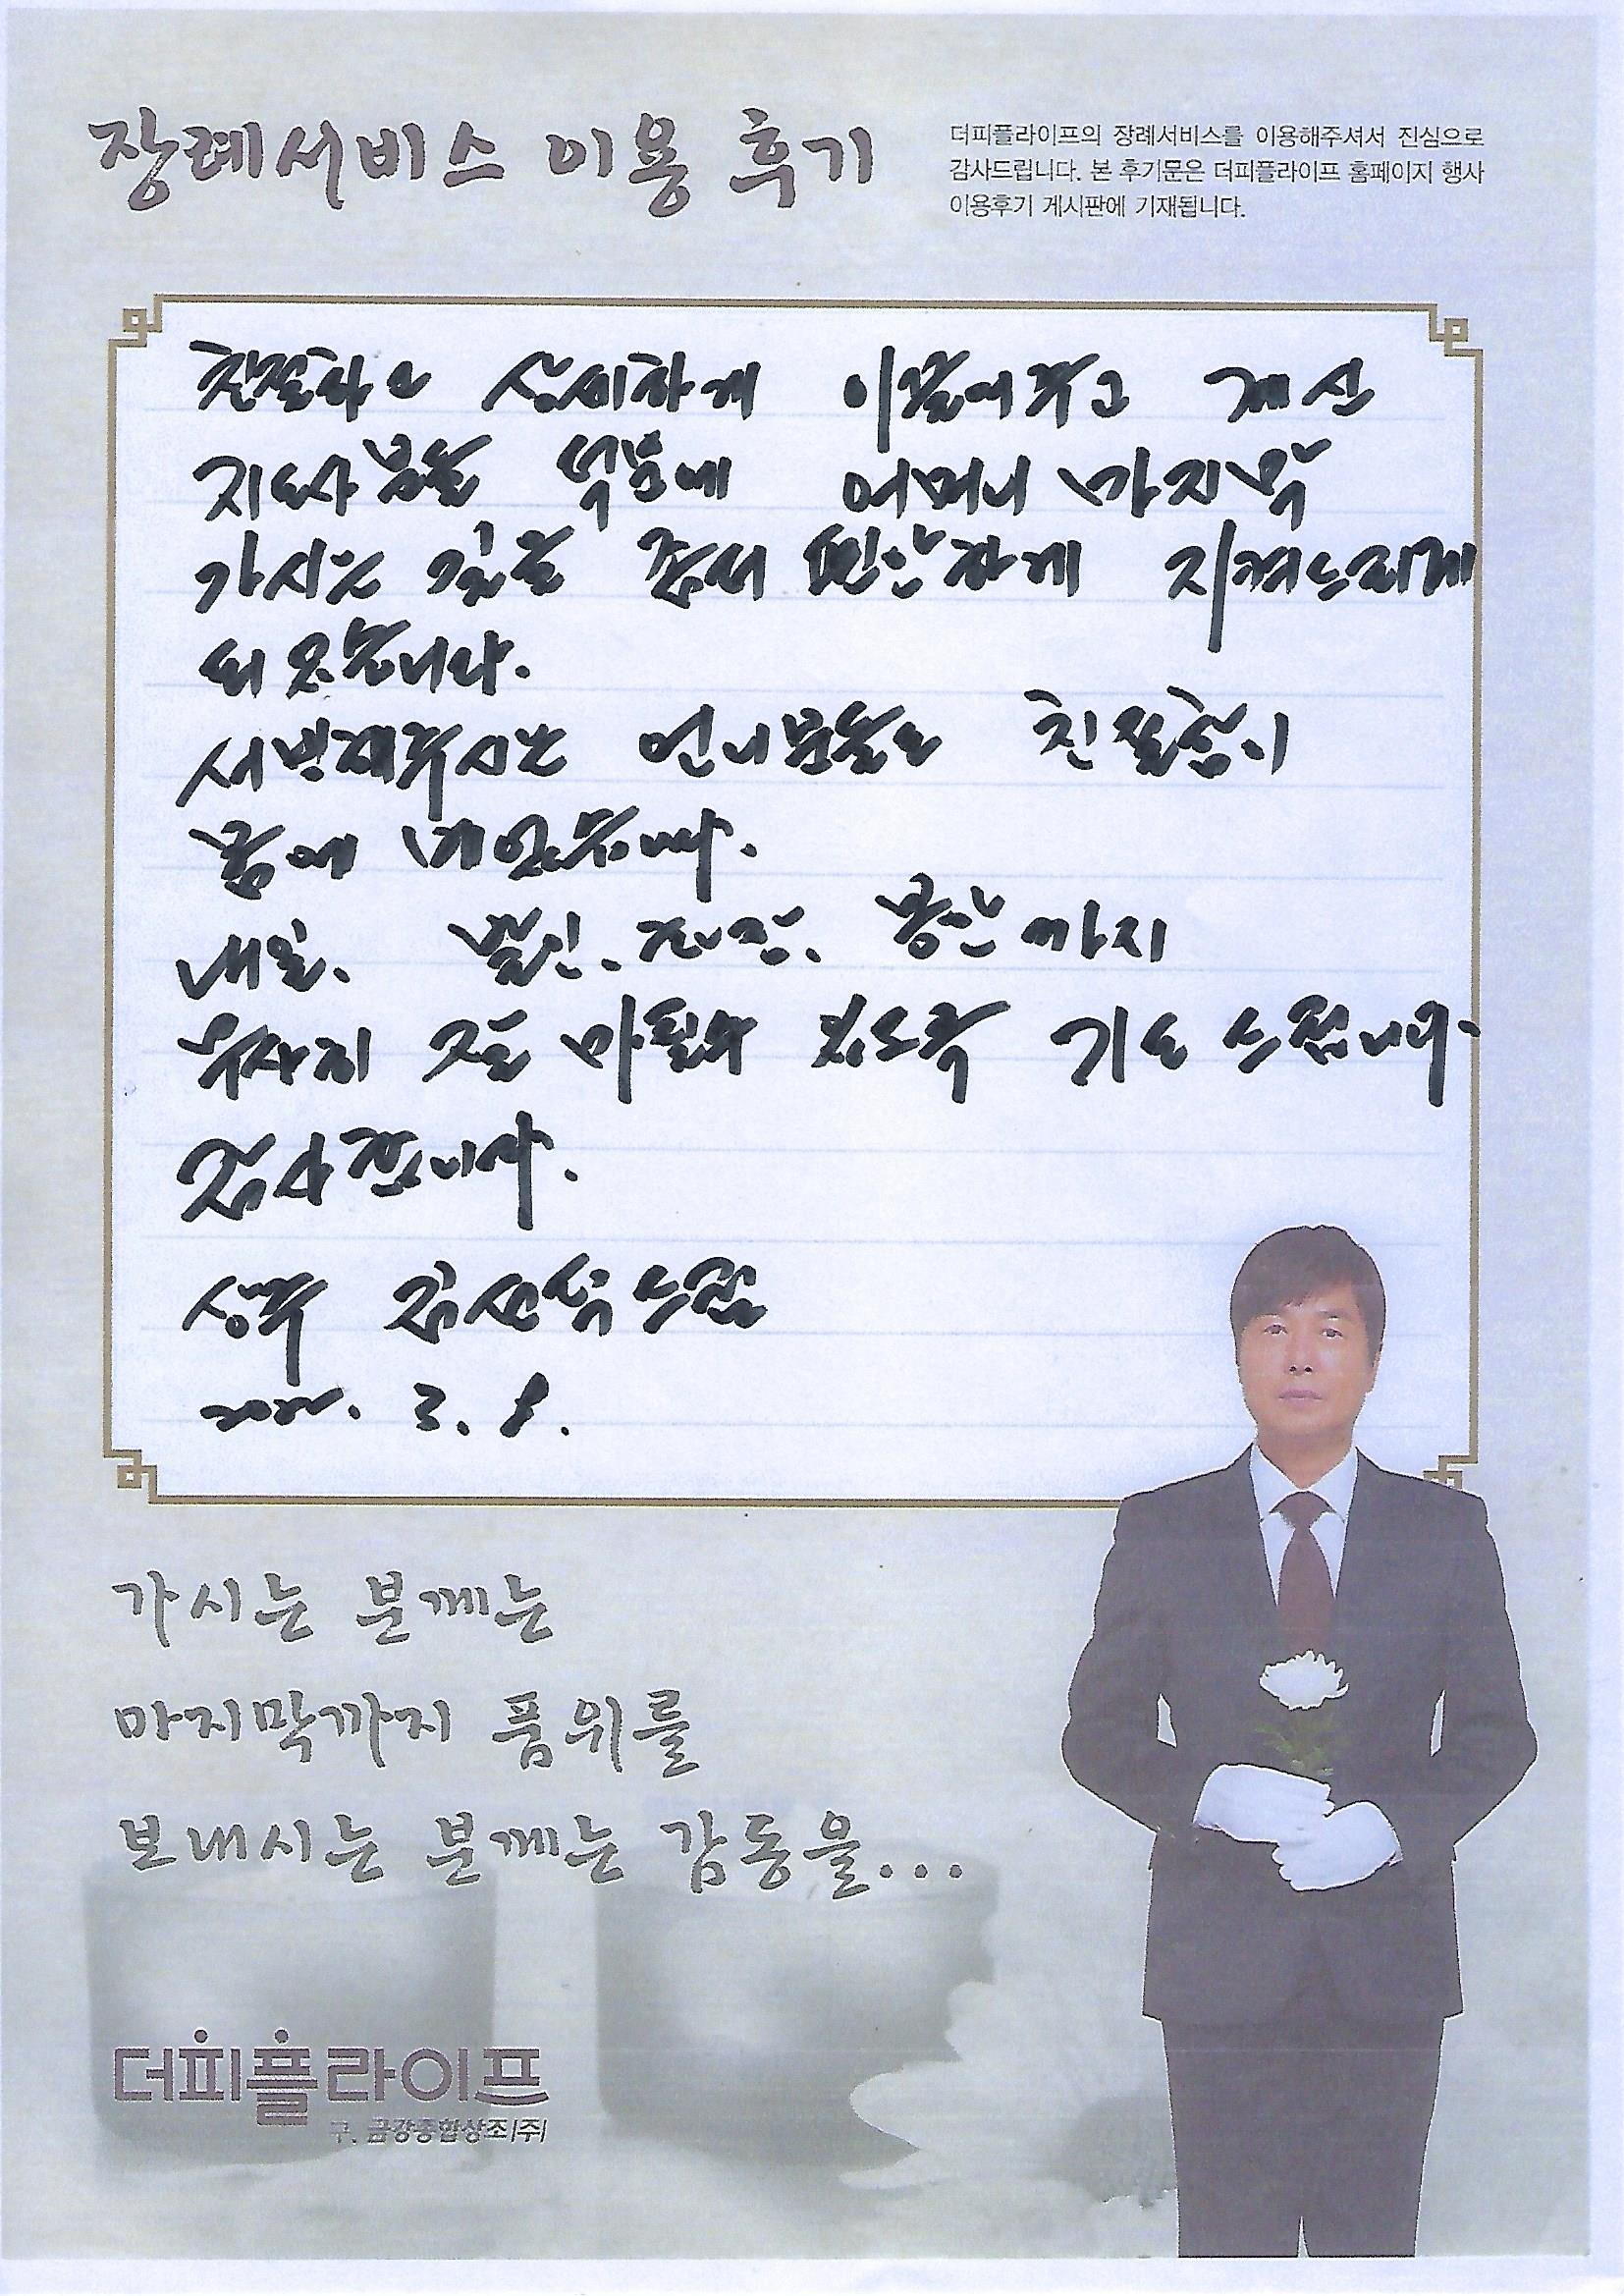 장례서비스 이용 후기
더피플라이프의 장례서비스를 이용해주셔서 진심으로
감사드립니다. 본 후기문은 더피플라이프 홈페이지 행사
이용후기 게시판에 기재됩니다.
친절하고 상세하게 이끌어주고 계신
지도사분들 덕분에 어머니 마지막
가시는 길을 좀더 편안하게 지켜드리게
되었습니다.
서빙해주시는 언니분들도 친절함이
몸에 배었습니다.
내일. 발인. 화장. 봉안까지
무사히 잘 마칠수 있도록 기도 드립니다.
감사합니다.
상주 김선식드림
2022. 3. 8.
가시는 분께는
마지막까지 품위를
보내시는 분께는 감동을...
더피플라이프
구. 금강종합상조(주)